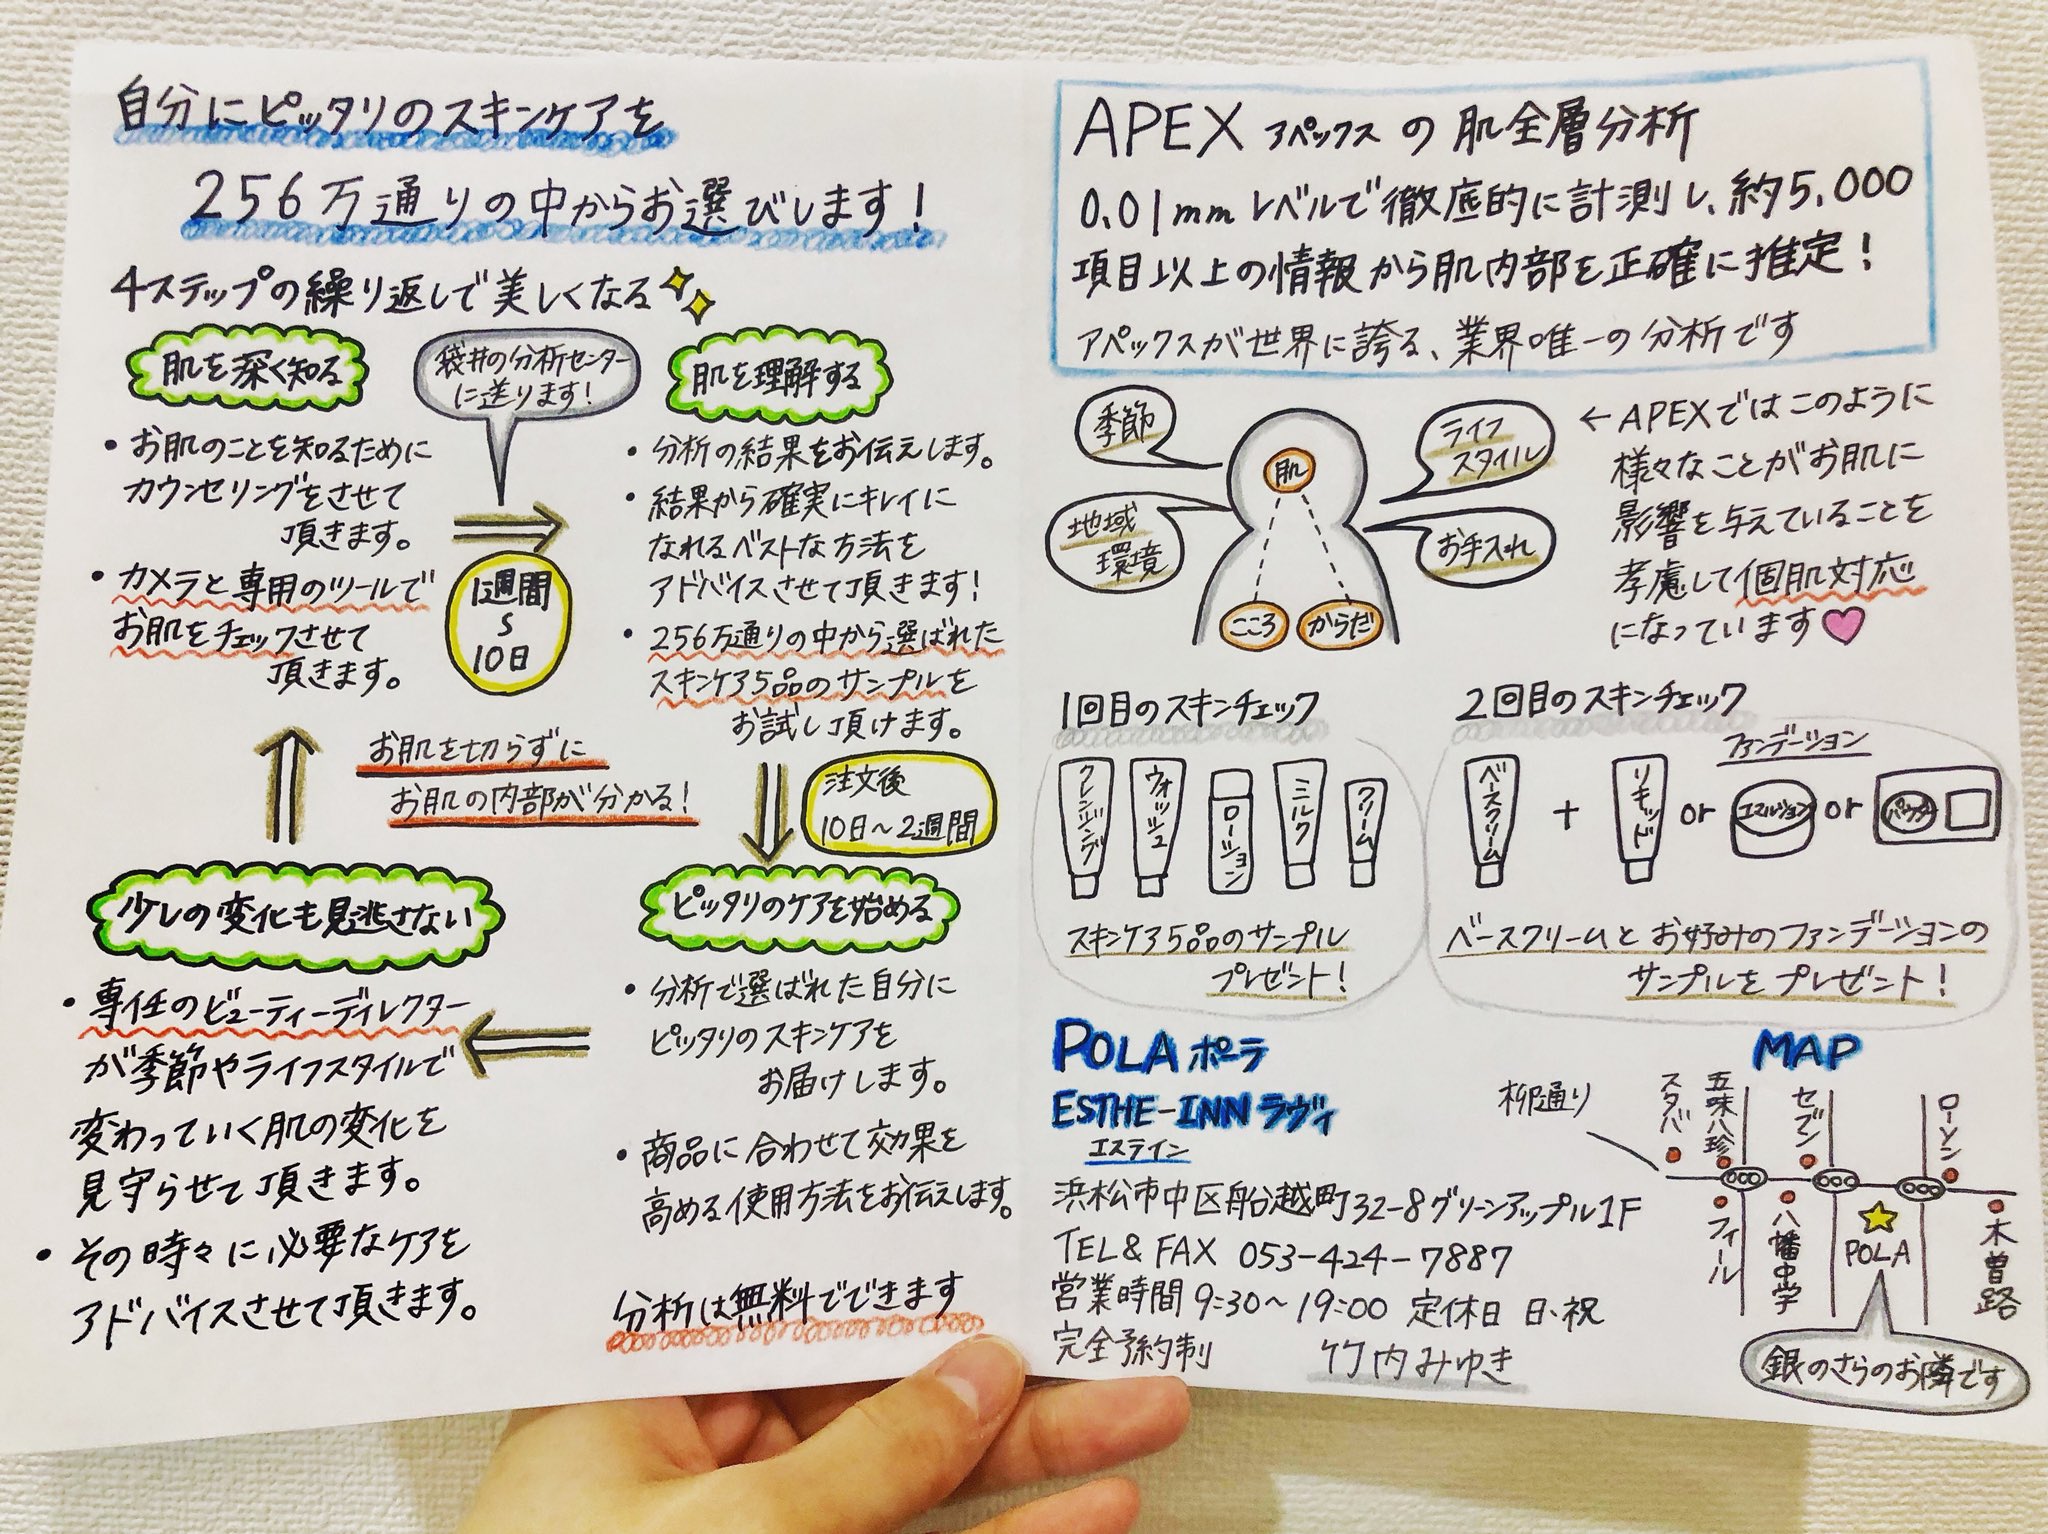 自分にピッタリのスキンケアを
256万通りの中からお選びします!
4ステップの繰り返しで美しくなる
肌を深く知る
・お肌のことを知るために
カウンセリングをさせて
頂きます。
・カメラと専用のツールで
お肌をチェックさせて
頂きます。
袋井の分析センター
に送ります!
1週間
〜
10日
肌を理解する
・分析の結果をお伝えします。
・結果から確実にキレイに
なれるベストな方法を
アドバイスさせて頂きます!
・256万通りの中から選ばれた
スキンケア5品のサンプルを
お試し頂けます。
お肌を切らずに
お肌の内部が分かる!
注文後
10日〜2週間
ピッタリのケアを始める
・分析で選ばれた自分に
ピッタリのスキンケアを
お届けします。
・商品に合わせて効果を
高める使用方法をお伝えします。
少しの変化も見逃さない
・専任のビューティーディレクター
が季節やライフスタイルで
変わっていく肌の変化を
見守らせて頂きます。
・その時々に必要なケアを
アドバイスさせて頂きます。
分析は無料でできます
APEX アペックスの肌全層分析
0.01mmレベルで徹底的に計測し、約5,000
項目以上の情報から肌内部を正確に推定!
アペックスが世界に誇る、業界唯一の分析です
季節
地域
環境
ライフ
スタイル
お手入れ
肌
こころ
からだ
←APEXではこのように
様々なことがお肌に
影響を与えていることを
考慮して個肌対応
になっています♡
1回目のスキンチェック
クレンジング
ウォッシュ
ローション
ミルク
クリーム
スキンケア5品のサンプル
プレゼント!
2回目のスキンチェック
ファンデーション
ベースクリーム + リキッド or エマルション or パウダー
ベースクリームとお好みのファンデーションの
サンプルをプレゼント!
POLA ポーラ
ESTHE-INN ラヴィ
エステイン
浜松市中区船越町32-8グリーンアップル1F
TEL & FAX 053-424-7887
営業時間 9:30〜19:00 定休日 日・祝
完全予約制 竹内みゆき
MAP
柳通り
スタバ
五味八珍
セブン
ローソン
フィール
八幡中学
POLA
木曽路
銀のさらのお隣です